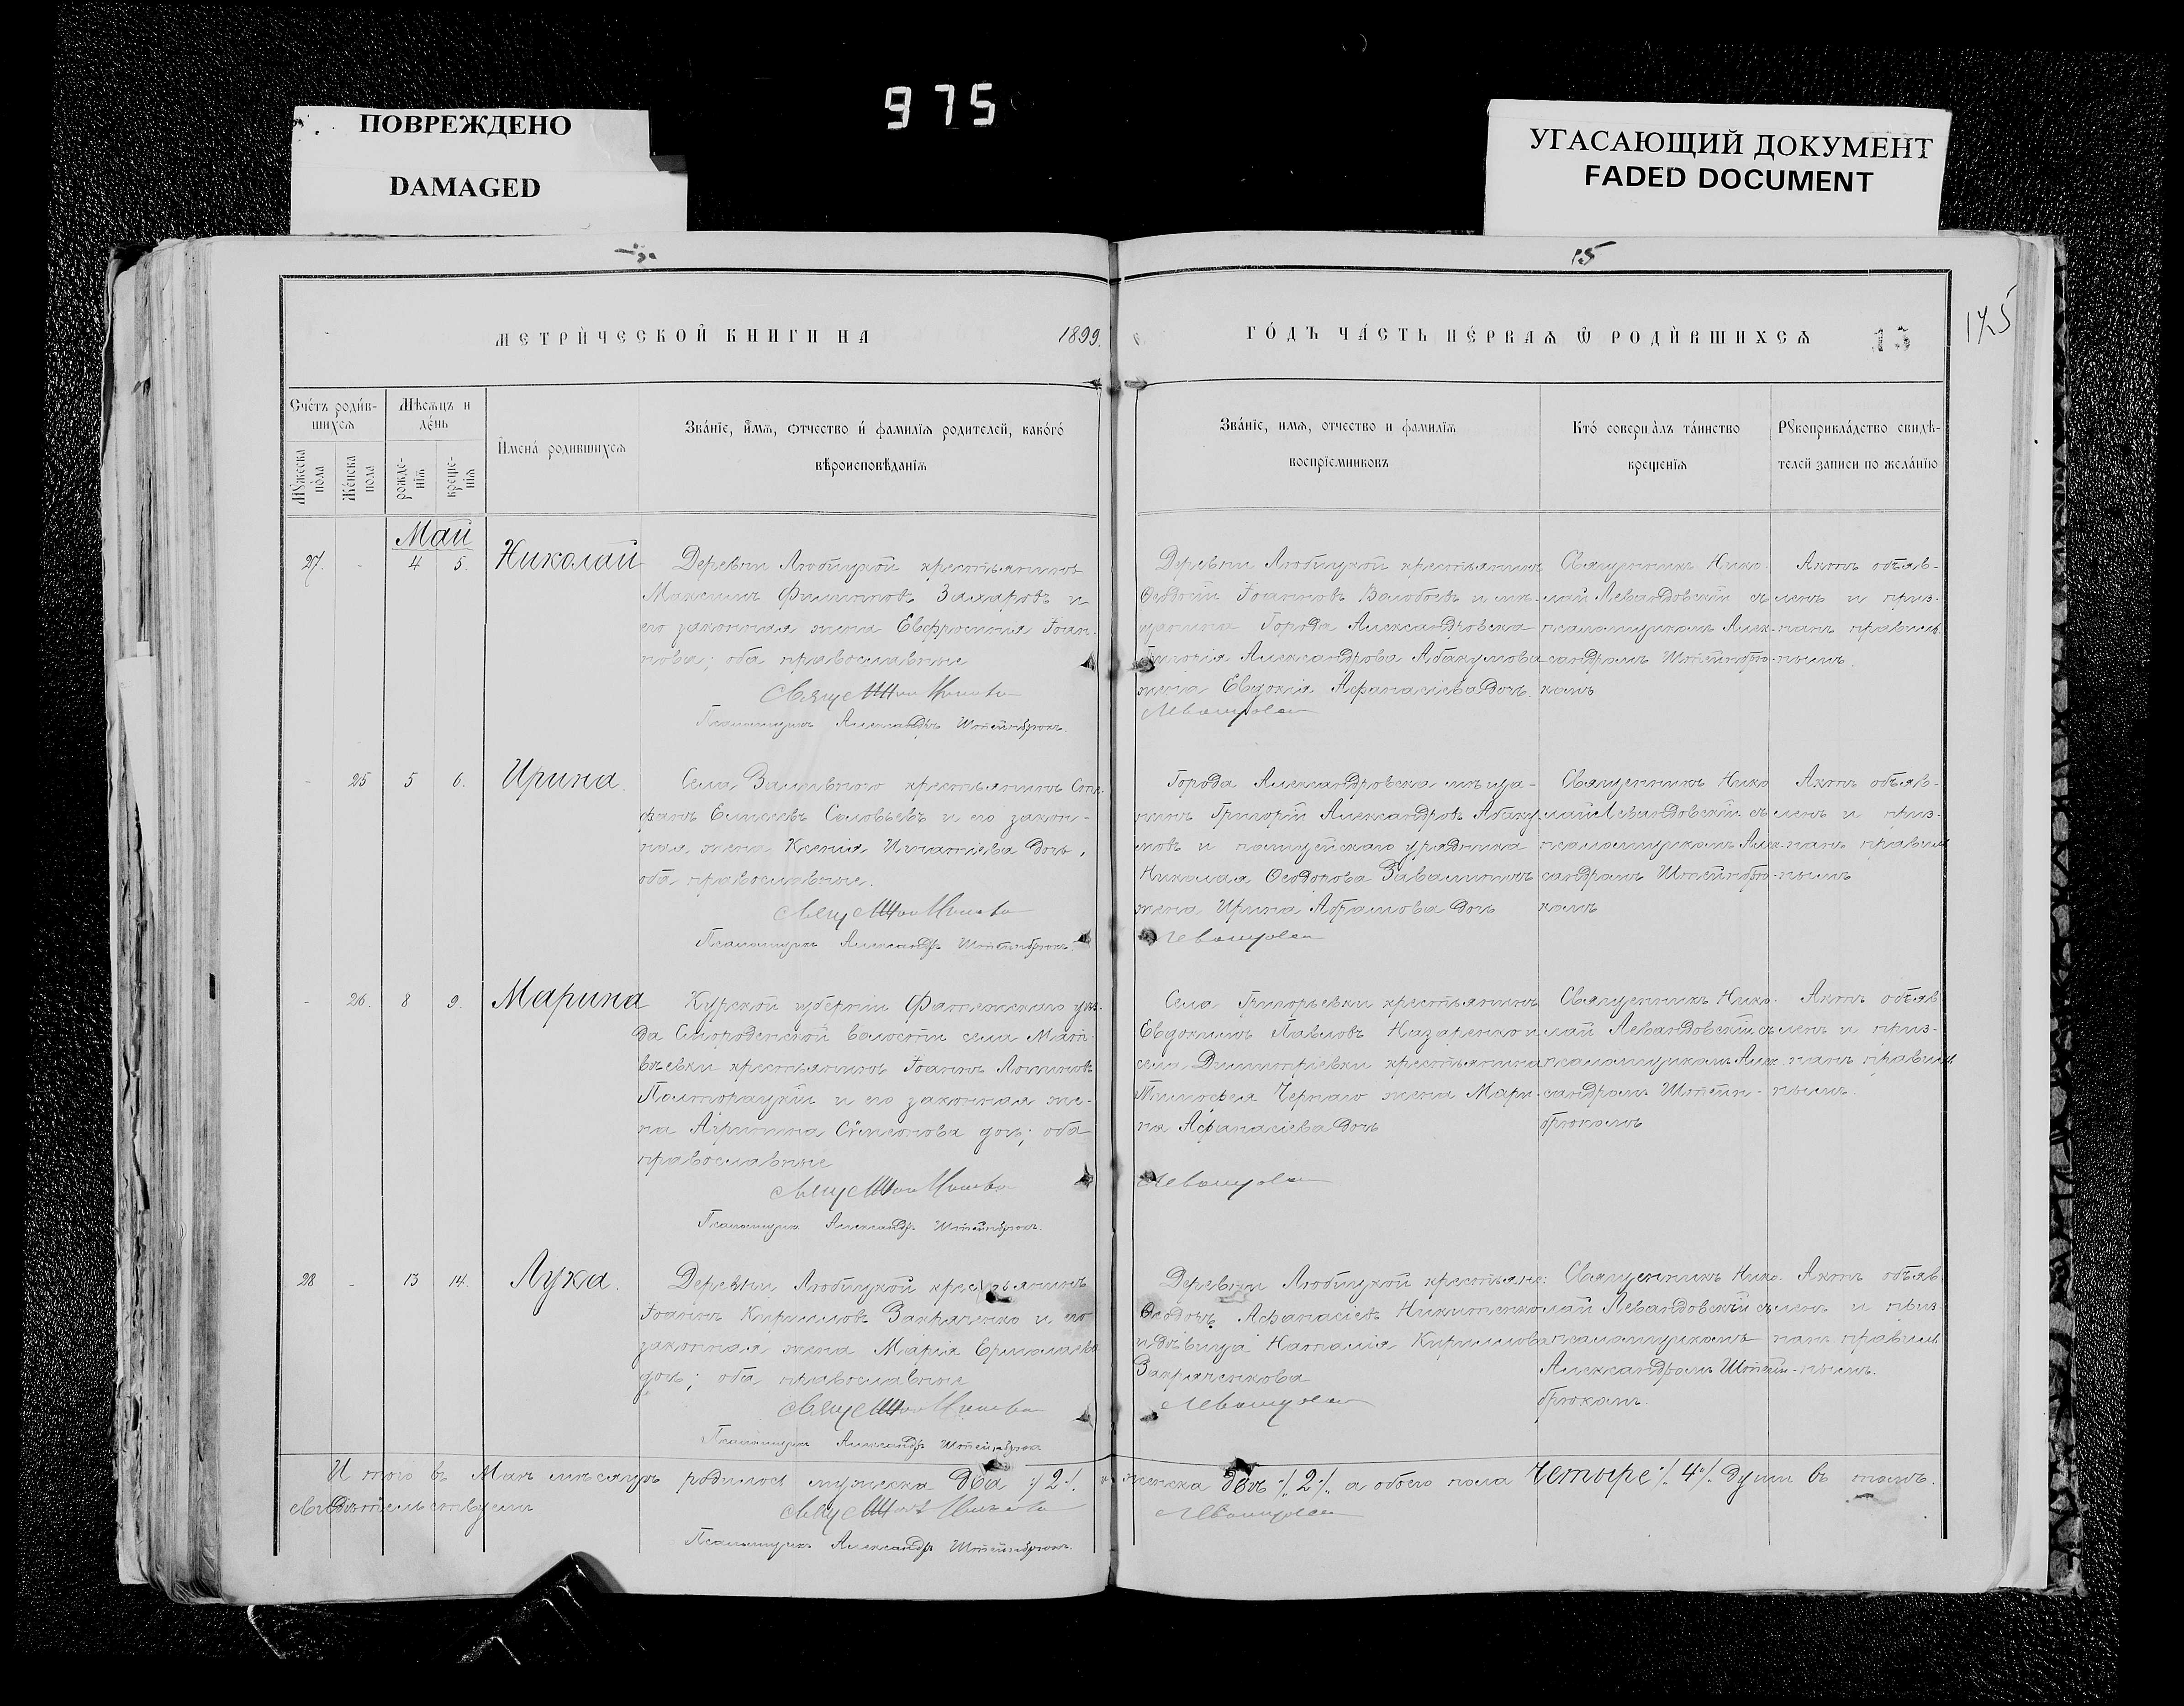 975
ПОВРЕЖДЕНО
DAMAGED
УГАСАЮЩИЙ ДОКУМЕНТ
FADED DOCUMENT
15
175
МЕТРИ́ЧЕСКОЙ КНИГИ НА 1899
ГО́ДЪ ЧА́СТЬ ПЕ́РВАѦ Ѿ РОДИ́ВШИХСѦ 15
Сче́тъ роди́в-
шихсѧ
Мꙋ́жеска по́ла
Же́нска пола
Мѣсѧцъ и де́нь
рожде-
нїѧ
креще-
нїѧ
Имена́ родившихсѧ
Зва́нїе, и́мѧ, ѻтчество и́ фамилїѧ родителей, како́гѡ́
вѣроисповѣ́данїѧ
Зва́нїе, имѧ, отчество и фамилїѧ
воспрїемниковъ
Кто́ соверша́лъ та́инство
крещенїѧ
Рꙋкоприкла́дство свидѣ-
телей записи по жела́нїю
Май
27. - 4 5. Николай
Деревни Любицкой крестьянинъ
Максимъ Филипповъ Захаровъ и
его законная жена Евфросинія Іоан-
нова; оба православные
Псаломщикъ Александръ Штейнбрюкъ.
Деревни Любицкой крестьянинъ
Ѳеодосій Іоанновъ Волобоевъ и мѣ-
щанина Города Александровска
Григорія Александрова Абакумова
жена Евдокія Аѳанасіева дочь.
Священникъ Нико-
лай Левандовскій съ
псаломщикомъ Алек-
сандромъ Штейнбрю-
комъ
Актъ объяв-
ленъ и приз-
нанъ правиль-
нымъ.
- 25 5 6. Ирина.
Села Заливного крестьянинъ Сте-
фанъ Елисеевъ Соловьевъ и его закон-
ная жена Ксенія Игнатіева дочь,
оба православные.
Псаломщикъ Александръ Штейнбрюкъ.
Города Александровска мѣща-
нинъ Григорій Александровъ Абаку-
мовъ и полицейскаго урядника
Николая Ѳеодорова Завалиннъ
жена Ирина Абрамова дочь
Священникъ Нико
лай Левандовскій съ
псаломщикомъ Алек-
сандромъ Штейнбрю-
комъ
Актъ объяв-
ленъ и приз-
нанъ правиль
нымъ
- 26. 8 9. Марина
Курской губерніи Фатежскаго уѣз-
да Смородинской волости села Мат-
вѣевки крестьянинъ Іоаннъ Логиновъ
Полторацкій и его законная же-
на Агрипина Сѵмеонова дочь; оба
православные
Псаломщикъ Александръ Штейнбрюкъ.
Села Григорьевки крестьянинъ
Евдокимъ Павловъ Назаренко и
села Димитріевки крестьянина
Тимоѳея Чернаго жена Мари-
на Аѳанасіева дочь
Священникъ Нико-
лай Левандовскій съ
псаломщикомъ Алек-
сандромъ Штейн-
брюкомъ
Актъ объяв
ленъ и приз-
нанъ правиль
нымъ.
28 - 13 14. Лука.
Деревни Любицкой крестьянинъ
Іоаннъ Кирилловъ Закряченко и его
законная жена Марія Ермолаева
дочь; оба православные
Псаломщикъ Александръ Штейнбрюкъ
Деревни Любицкой крестьяне:
Ѳеодоръ Аѳанасіевъ Никитенко
и дѣвица Наталія Кириллова
Закряченкова
Священникъ Нико-
лай Левандовскій съ
псаломщикомъ
Александромъ Штейн-
брюкомъ.
Актъ объяв
ленъ и приз
нанъ правиль
нымъ.
И того въ Маѣ мѣсяцѣ родилось мужеска два ./2./. и женска двѣ ./.2./. а обоего пола четыре ./.4./. души въ томъ.
свидѣтельствуемъ
Псаломщикъ Александръ Штейнбрюкъ.